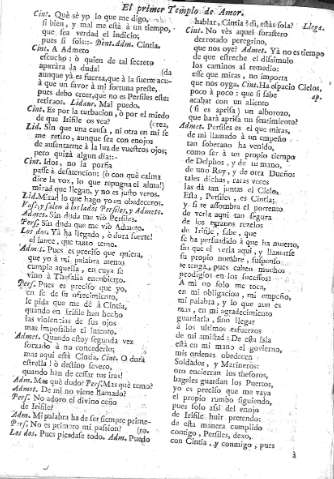 El primer Templo de Amor.
Cint. Què sè yo lo que me digo,
si bien, y mal me està à un tiempo,
que sea verdad el indicio;
pues si solo:- Dent. Adm. Cintia.
Cint. A Admeto
escucho: ò quien de tal secreto
apartàra la duda!
aunque yà es fuerça, que à la fuerte
que un favor à mi fortuna preste,
pues debo creer, que no es Persiles este:
retiraos. Lidoro. Mal puedo.
Cint. Es por la turbacion, ò por el miedo
de que Irisile os vea?
Lid. Sin que una cosa, ni otra en mi se
me retiro, aunque sea con enojos
de ausentarme à la luz de vuestros ojos;
pero quizà algun dia:-
Cint. Idos, no la porfia
passe à desatencion: (ò con què calma
dice la voz, lo que repugna el alma!)
mirad que llegan, y no es justo veros.
Lid. Mirad lo que hago yo en obedeceros.
Vase, y salen à los lados Persiles, y Admeto.
Admet. Sin duda me viò Persiles.
Pers. Sin duda que me viò Admeto.
Los dos. Yà ha llegado, ò dura suerte!
el lance, que tanto temo.
Adm. Pues es preciso que quiera,
que yo à mi palabra atento
cumpla aquella, en cuya fe
vino à Thesalia encubierto.
Pers. Pues es preciso que yo,
en fe de su ofrecimiento,
le pida que me dè à Cintia,
quando en Irisile han hecho
las violencias de sus ojos
mas imposible el intento.
Admet. Quando estoy segunda vez
forzado à no concederla;
mas aqui està Cintia. Cint. O dura
estrella! ò destino severo,
quando han de cessar tus iras!
Adm. Mas què dudo? Pers. Mas què temo?
Admet. De mi no viene llamado?
Pers. No adoro el divino ceño
de Irisile?
Adm. Mi palabra ha de ser siempre primero.
Pers. No es primero mi passion?
Los dos. Pues piedades todo. Adm. Puedo
hablar, Cintia? di, estàs sola? Llega.
Cint. No vès aquel forastero
derrotado peregrino,
que nos oye? Admet. Yà no es tiempo
de que estreche el disimulo
los caminos al remedio:
esse que miras, no importa
que nos oyga. Cint. Ha espacio Cielos,
poco à poco: que si sabe ap.
acabar con un aliento
(si es aprisa) un alborozo,
que harà aprisa un sentimiento?
Admet. Persiles es el que miras,
de mi llamado à un empeño
tan soberano ha venido,
como ser à un propio tiempo
de Delphos, y de su mano,
de uno Rey, y de otra Dueño:
tales dichas, raras veces
las dà tan juntas el Cielo.
Esta, Persiles, es Cintia;
y si te assombra el portento
de verla aqui tan segura
de los rigores crueles
de Irisile, sabe, que
se ha persuadido à que ha muerto,
sin que el verla aqui, y llamarse
su propio nombre, suspenso
te tenga, pues caben muchos
prodigios en los sucessos:
A mi no solo me toca,
en mi obligacion, mi empeño,
mi palabra, y lo que aun es
mas, en mi agradecimiento
guardarla, sino llegar
à los ultimos esfuerzos
de mi amistad: De esta Isla
està en mi mano el govierno,
mis ordenes obedecen
Soldados, y Marineros:
oro encierran los thesoros,
baxeles guardan los Puertos,
yo es preciso que me vaya
el propio rumbo siguiendo,
pues solo assi del enojo
de Irisile huir pretendo:
de esta manera cumplido
contigo, Persiles, dexo,
con Cintia, y conmigo, pues
à